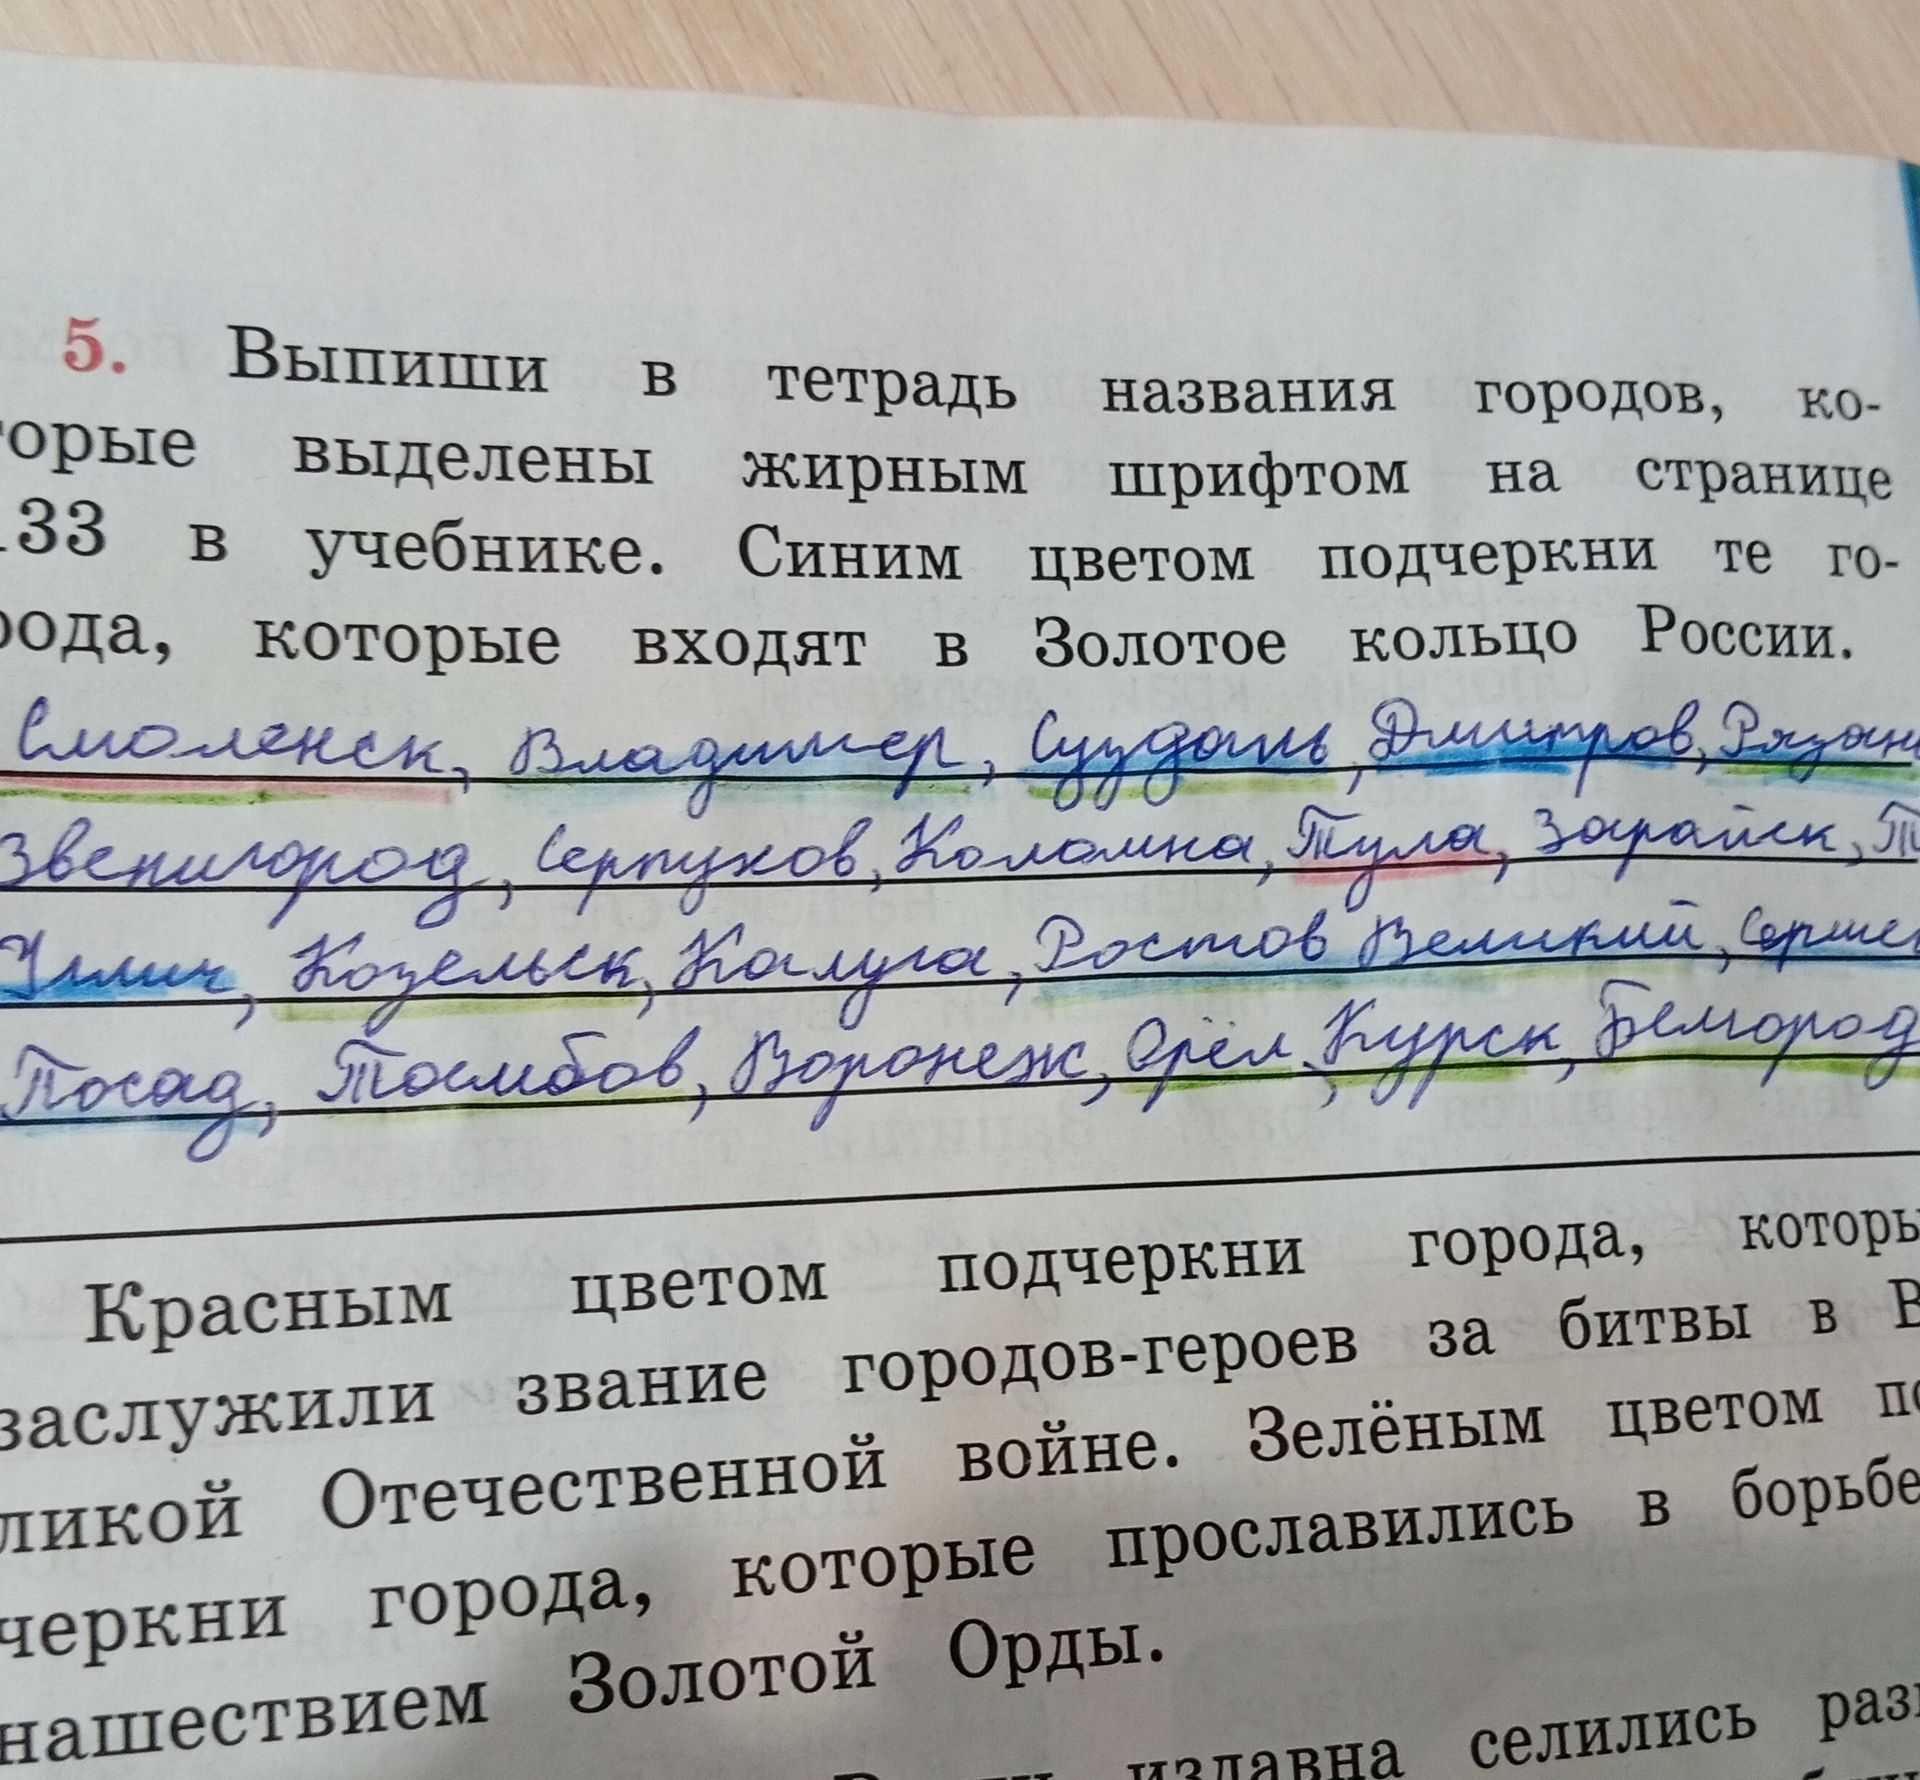 5. Выпиши в тетрадь названия городов, ко-
торые выделены жирным шрифтом на странице
133 в учебнике. Синим цветом подчеркни те го-
рода, которые входят в Золотое кольцо России.
Смоленск, Владимер, Суздаль, Дмитров, Рязан
Звенигород, Серпухов, Коломна, Тула, Зарайск, Т
Углич, Козельск, Калуга, Ростов Великий,
Посад, Тамбов, Воронеж, Орёл, Курск, Белгород
Красным цветом подчеркни города, которы
заслужили звание городов-героев за битвы в В
ликой Отечественной войне. Зелёным цветом по
черкни города, которые прославились в борьбе
нашествием Золотой Орды.
издавна селились раз